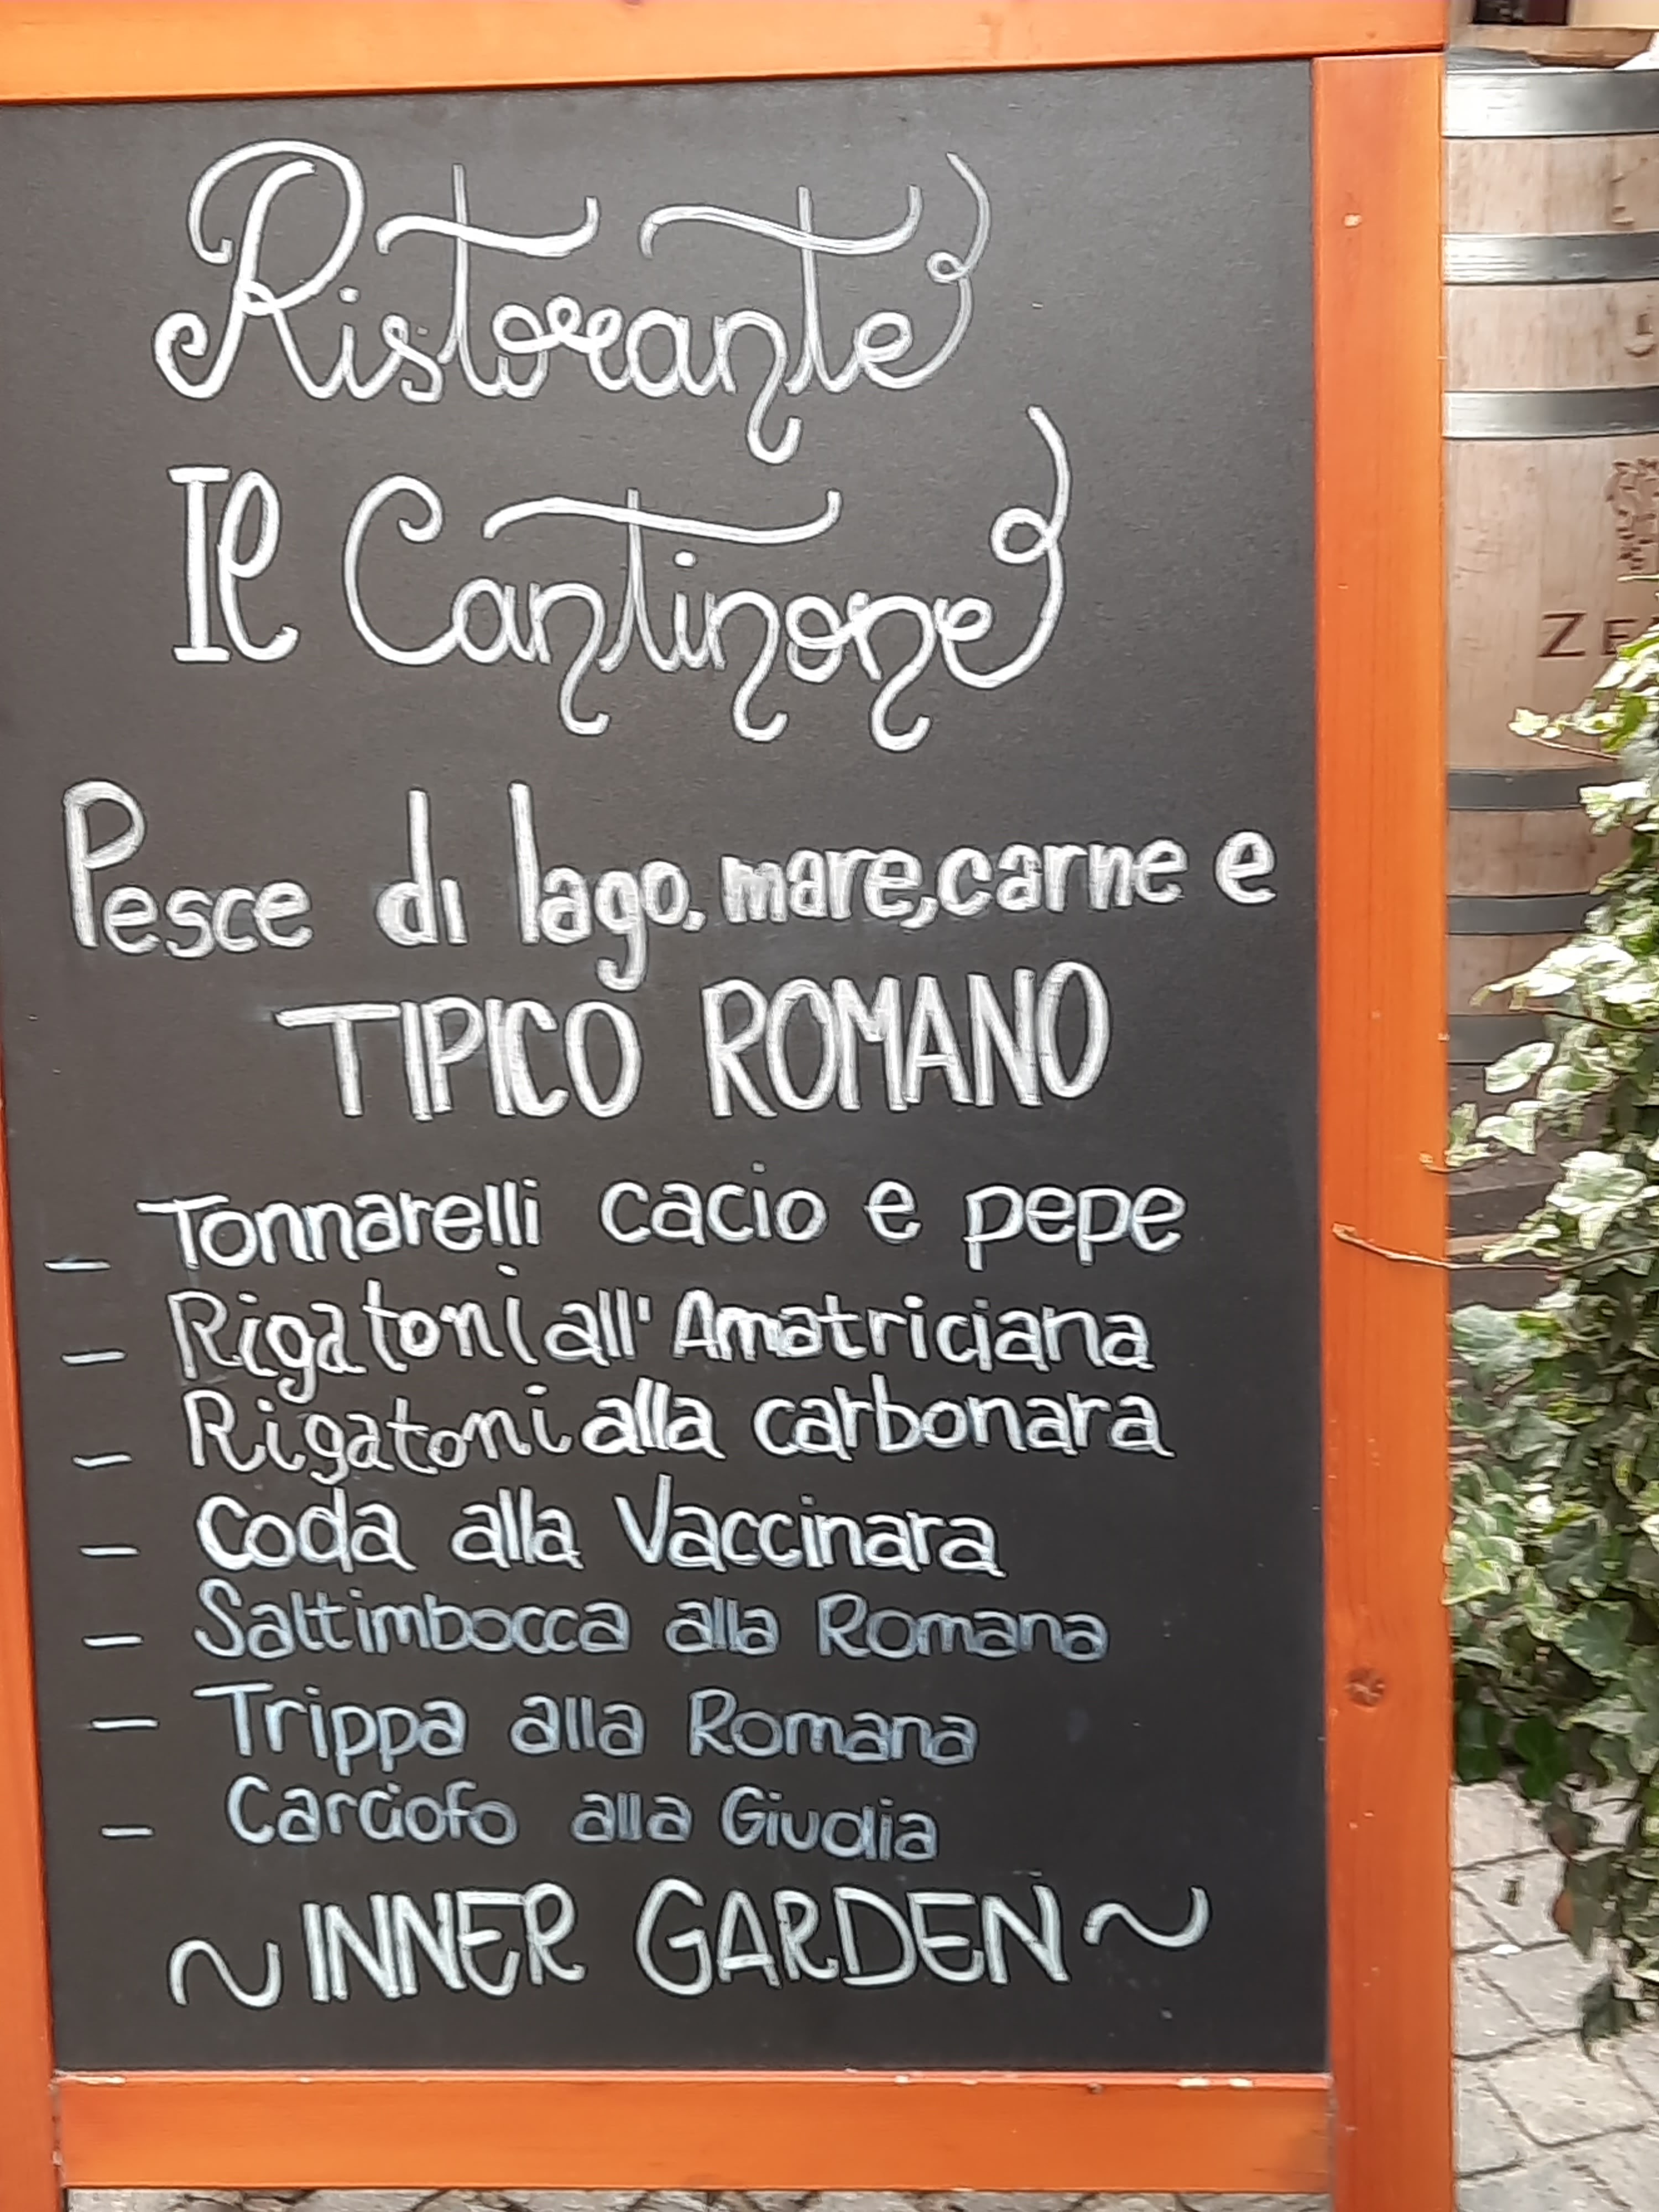 Ristorante
Il Cantinone
Pesce di lago, mare, carne e
TIPICO ROMANO
- Tonnarelli cacio e pepe
- Rigatoni all' Amatriciana
- Rigatoni alla carbonara
- Coda alla Vaccinara
- Saltimbocca alla Romana
- Trippa alla Romana
- Carciofo alla Giudia
~ INNER GARDEN ~